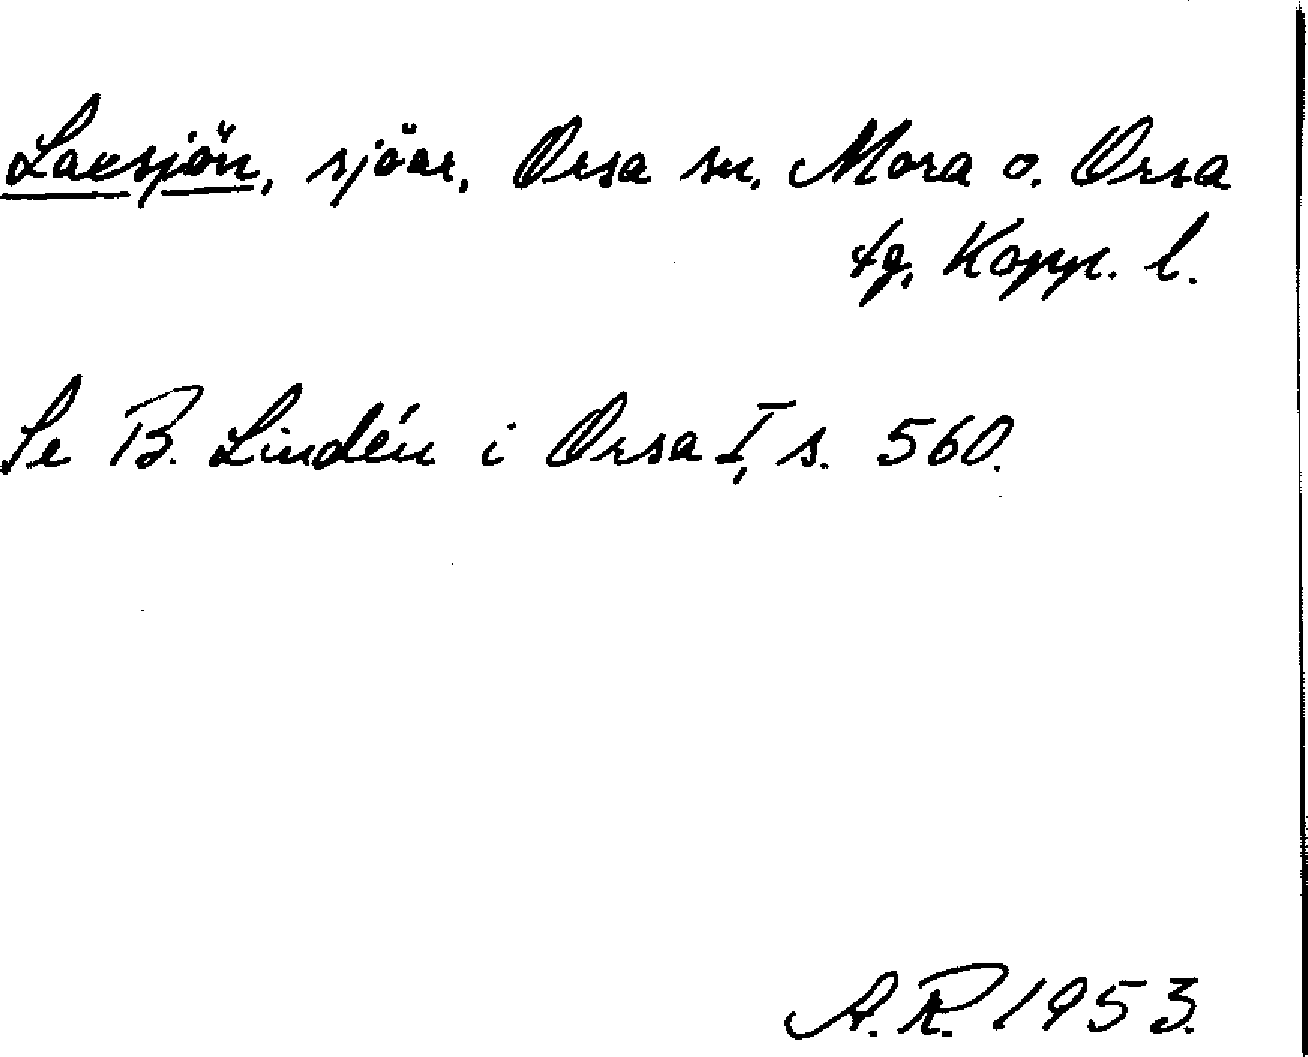 Lacsjön, sjöar, Orsa sn, Mora o. Orsa
tg, Kopp. l.
Se B. Lindén i Orsa I, s. 560.
A.R. 1953.